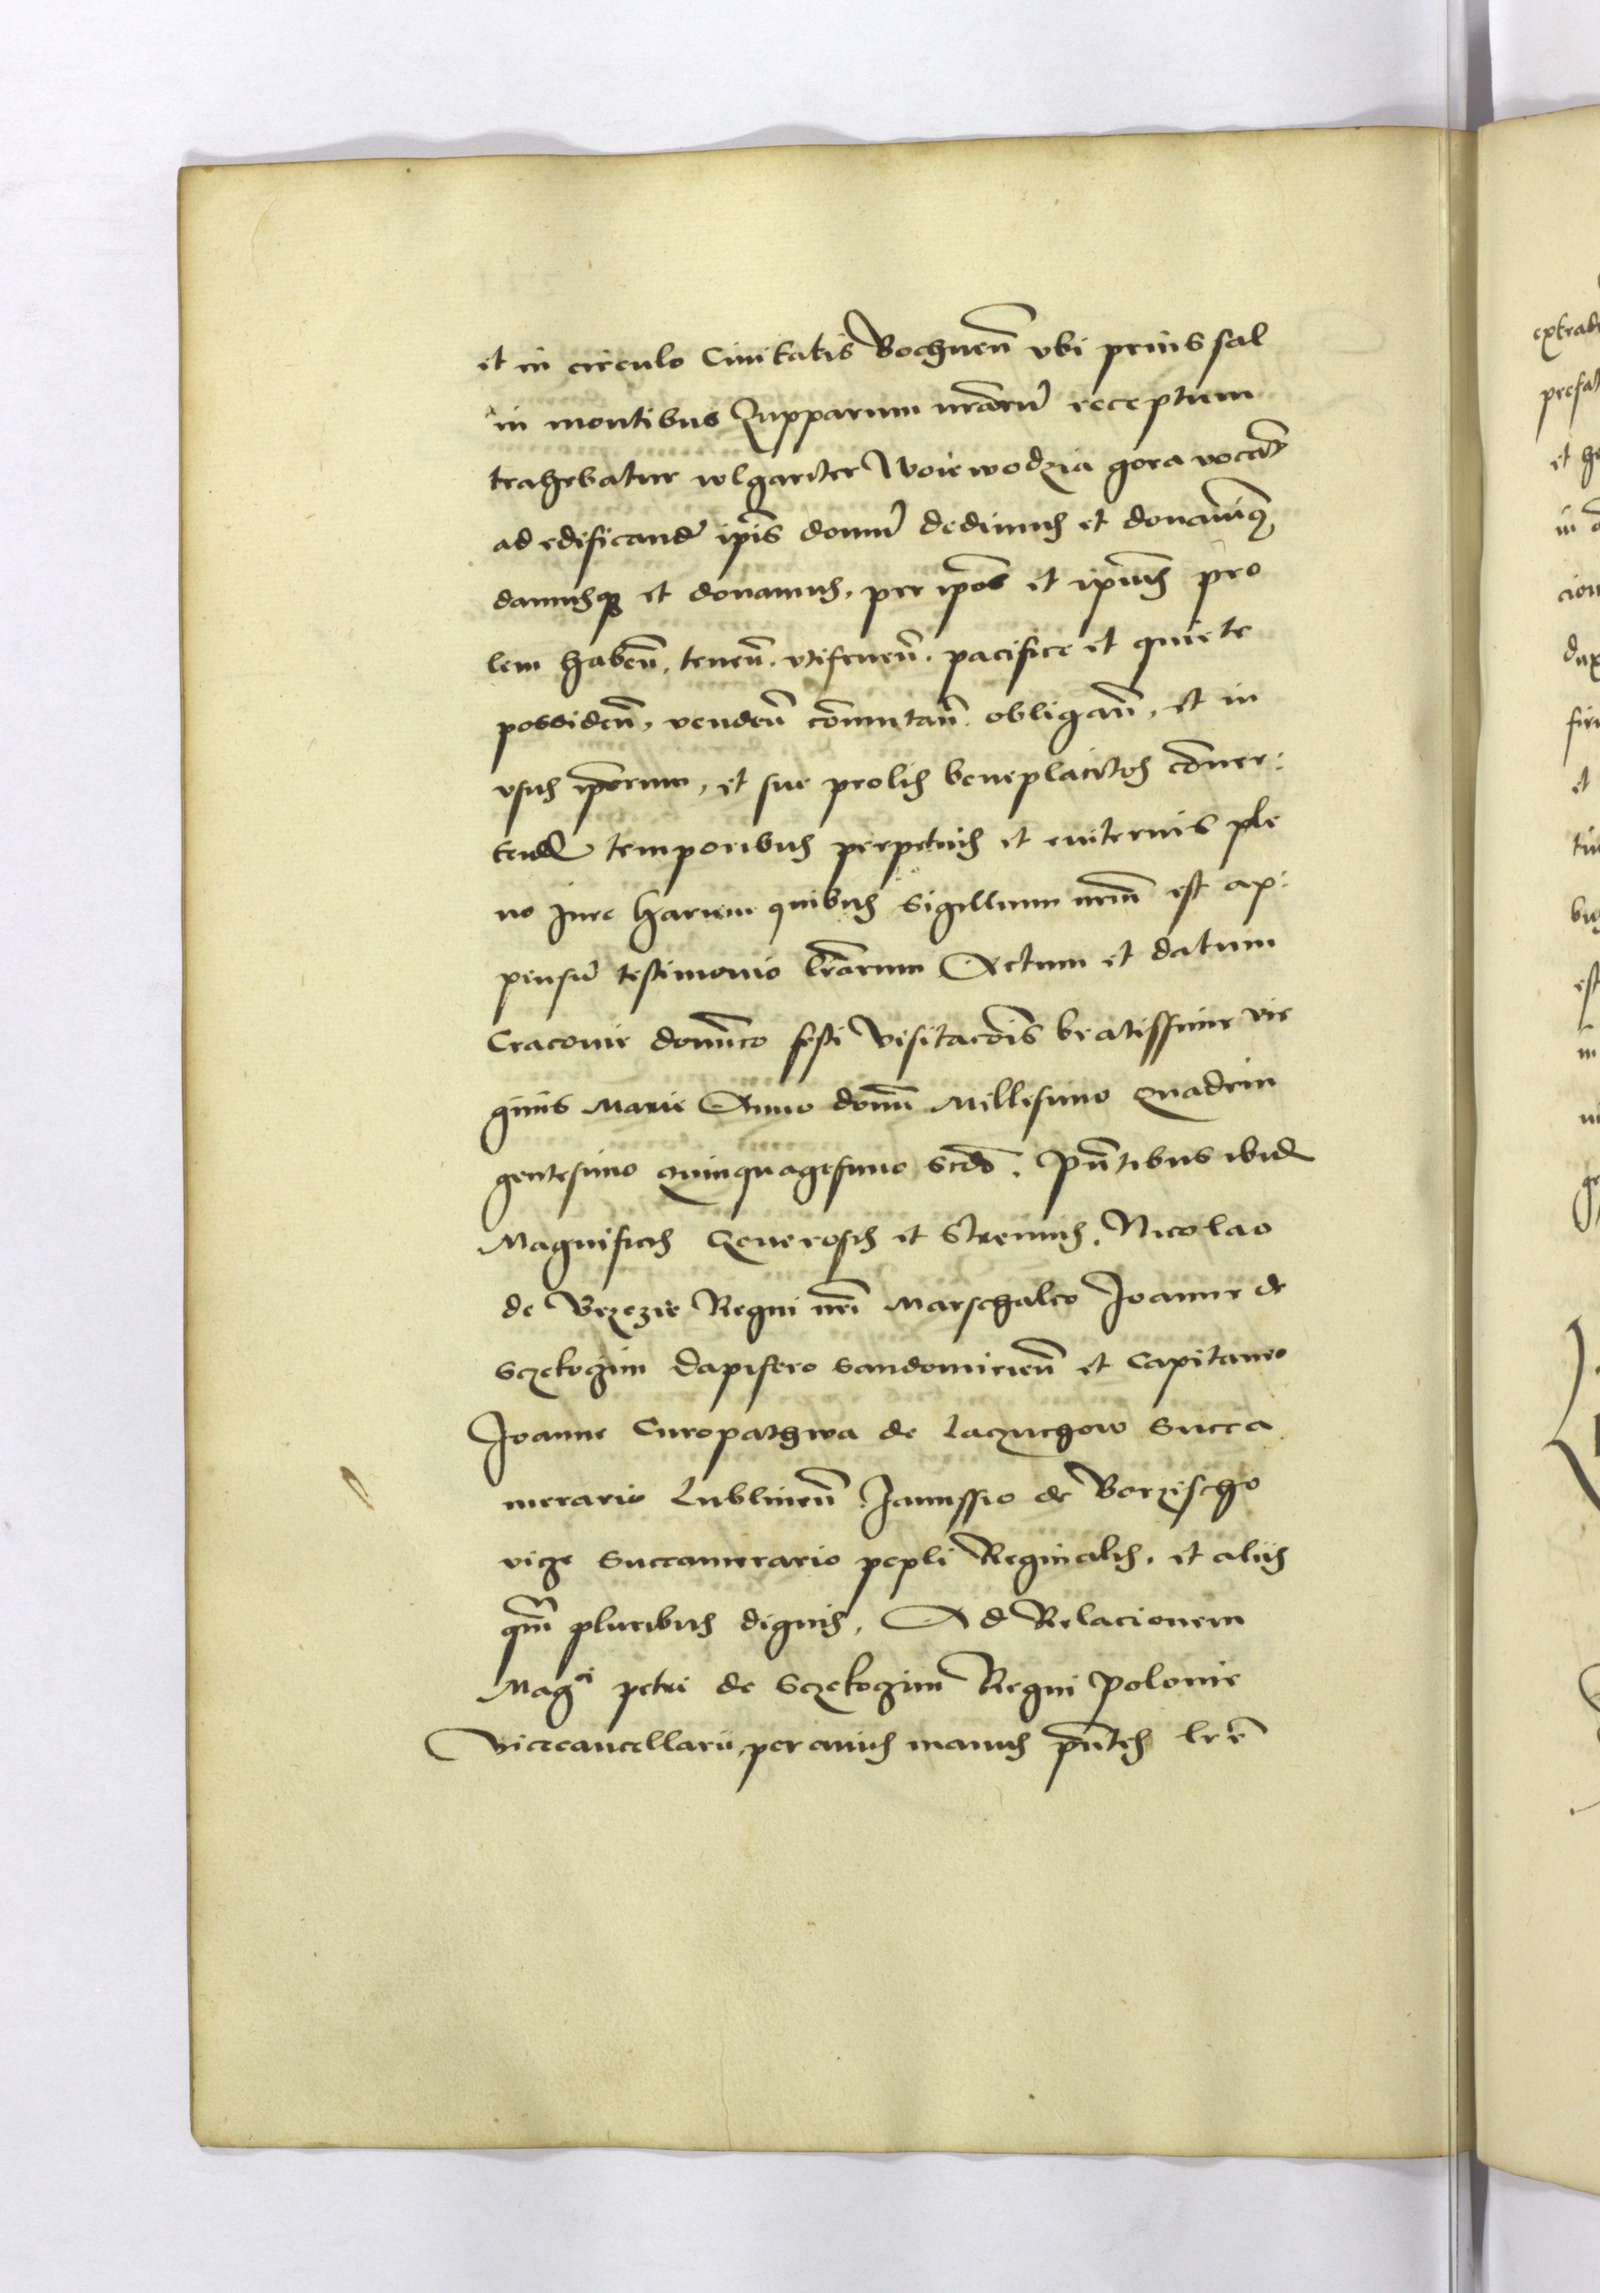 et in circulo Civitatis Bochnen̄ ubi prius sal
in montibus Zupparum nr̄arū receptum
trahebatur wlgariter Woiewodzia gora vocat̄
ad edificand̄ ip̄is domū dedimus et donavimꝰ
damusqꝫ et donamus, per ip̄os et ip̄orū pro
lem haben̄, tenen̄. utifruen̄. pacifice et quiete
possiden̄, venden̄ com̄utan̄. obligan̄, et in
usus ip̄orum, et sue prolis beneplacitos conver:
tend̄ temporibus perpetuis et eviternis ple
no iure Harum quibus Sigillum nrūm est ap:
pensū testimonio lr̄arum Actum et datum
Cracovie domīco festi Visitac̄ois beatissime vir
ginis Marie Anno domī Millesimo Quadrin
gentesimo quinquagesimo scd̄o. Pn̄tibus ibid̄
Magnificis Generosis et Strenuis. Nicolao
de Brzezie Regni nr̄i Marschalco Joanne de
Sczekoczim dapifero Sandomirien̄ et Capitaneo
Joanne Curopathwa de Laczuchow Succa
merario Lublinen̄ Janussio de Borzischo
vicze Succamerario popli Reginalis, et aliis
qm̄ pluribus dignis, Ad Relacionem
Mag^ci petri de Sczekoczim Regni Polonie
Vicecancellarii, per cuius manus pn̄tes lrē
extrad
prefat
et
in
cion
dux
fir
et
est